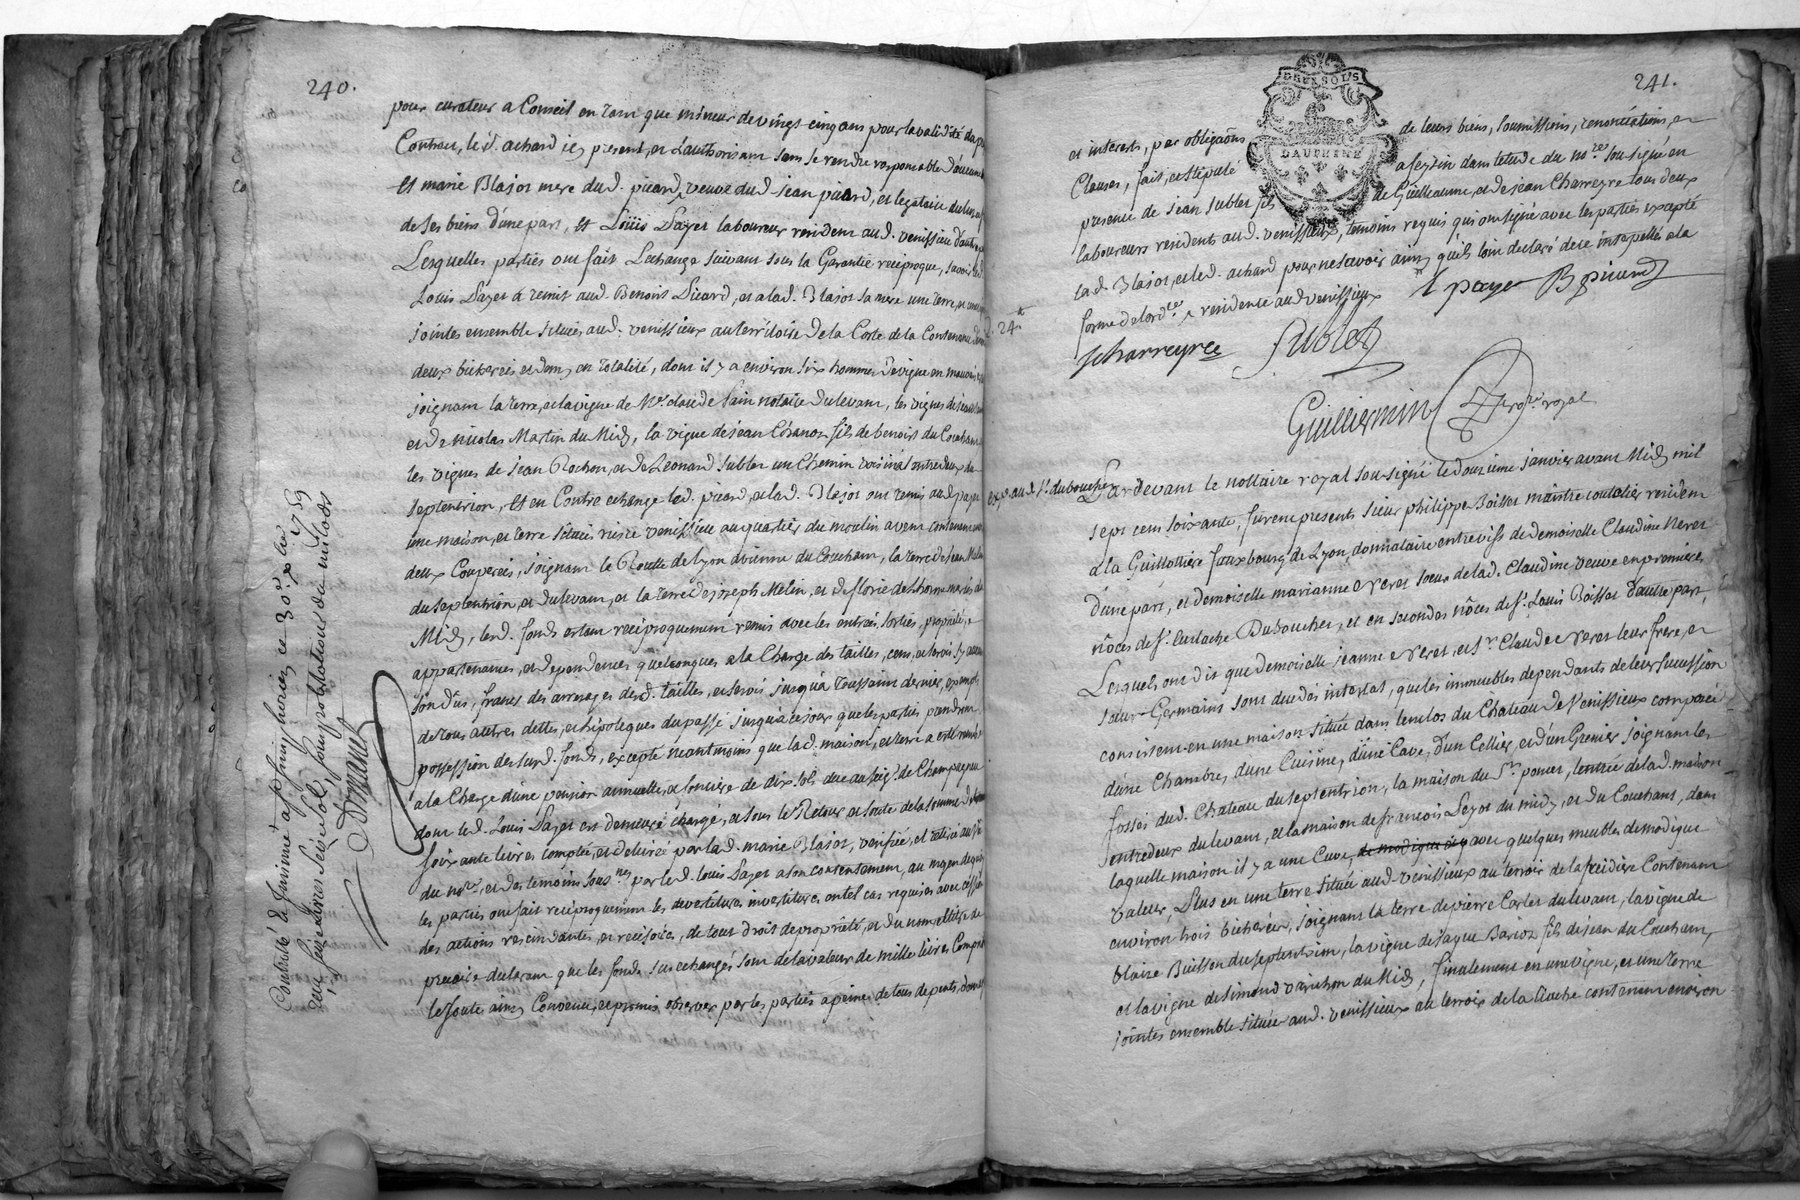 240.
pour curateur a Conseil en tant que mineur de vingt cinq ans pour la validité du p
Contract, le d. achard icy present, et l'authorisant sans se rendre responsable d'aucune
Et marie Blajot mere dud. picard, veuve dud jean picard, et legataire
de ses biens d'une part, Et Loüis Payet laboureur resident aud. venissieu d'autre
Lesquelles parties ont fait L'echange suivant sous la Garantie reciproque, savoir led
Louis Payet a remit aud. Benoist Picard, et a lad. Blajot sa mere une terre, et
jointes ensemble situées aud. venissieux au territoire de la Coste de la Contenance
deux bicherées et demy en totalité, dont il y a environ six hommes de vigne en mauvais
joignant la terre, et la vigne de Me. claude Pain notaire du levant, les vignes de jean
et de Nicolas Martin du Midy, la vigne de jean fils de benoist du Couchant
les vignes de jean Rochon, et de Leonard Sublet un Chemin voisinal entredeux du
septentrion, Et en Contre echange led. picard, et lad. Blajot ont remis aud payet
une maison, et terre situées riere venissieu au quartier du moulin a vent contenant
deux Couperées, joignant le Routte de Lyon a vienne du Couchant, la terre de jean
du septentrion, et du levant, et la terre de joseph Melin, et de florie du
Midy, lesd. fonds estant reciproquement remis avec les entrées, sorties, proprietés,
appartenances, et dependences quelconques a la Charge des tailles, cens, et servis s'y
sont dus, francs des arrerages desd. tailles, et servis jusqu'a toussaint dernier, exempts
de tous autres dettes, et hipoteques du passé jusqu'a ce jour que les parties prendront
possession desd. fonds, excepté neantmoins que lad. maison, et terre a esté remise
a la Charge d'une pension annuelle, et fonciere de dix sols due au seigr. de Champagneu
dont led. Louis Payet est demeuré chargé, et sous le Retour et soute de la somme de
soixante livres comptée, et delivrée par lad. marie Blajot, verifiée, et retirée au
du nore. et des temoins sous nés. par led. Louis Payet a son contentement, au moyen de quoy
les parties ont fait reciproquement les devestitures investitures en tel cas requises avec
des actions rescindantes, et rescisoires, de tout droit de proprieté, et du nom et titre de
precaire declarant que les fonds sus echangés sont de la valeur de mille livres Compris
le soute ainsy Convenu, et promis observer par les parties a peine de tous depents, dom
Controllé & Insinué a st simphorien, ce 30e. xbre 1759
Reçu seize livres sept sols, sans prohibition des mi lods
Drmanet
241.
DEUX SOLS
DAUPHINE
et interests, par obligaons de leurs biens, soumissions, renonciations, et
Clauses, fait, et stipulé a feyzin dans l'etude du nore. sousigné en
presence de jean Sublet fils de Guilleaume, et de jean Charreyre tous deux
laboureurs residents aud. venissieux, temoins requis qui ont signé avec les parties excepté
lad. Blajot, et led. achard pour ne scavoir ainsy qu'ils l'ont declaré de ce interpellés a la
forme de l'ordce. residents aud venissieux
L paye B picard
jcharreyre Sublet
Guilliermin nore. royal
24
exp. au d. Sr. duboucher
Pardevant le nottaire royal sousigné le douzieme janvier avant Midy mil
sept cent soixante, furent presents sieur philippe Boissat maistre coutelier resident
a la Guillottiere fauxbourg de Lyon, donnataire entre vifs de demoiselle Claudine Neret
d'une part, et demoiselle marianne Neret soeur de lad. Claudine veuve en premieres
nôces de sr. Eustache Duboucher, et en secondes nôces de sr. Louis Boissat d'autre part,
Lesquels ont dit que demoiselle jeanne Neret, et sr. Claude Neret leur frere, et
soeur Germains sont decedés intestat, que les immeubles dependants de leur succession
consistent en une maison située dans l'enclos du Chateau de Venissieux composée
d'une Chambre, d'une Cuisine, d'une Cave, d'un Cellier, et d'un Grenier joignant les
fossés dud. Chateau du septentrion, la maison du Sr. poncet, l'entrée de lad. maison
entredeux du levant, et la maison de françois Leyot du midy, et du Couchant, dans
laquelle maison il y a une Cuve, avec quelques meubles de modique
valeur, Plus en une terre située aud. venissieux au terroir de la Contenant
environ trois bicherées, joignant la terre de pierre Carlet du levant, la vigne de
blaise Buisson du septentrion, la vigne de jaque Barioz fils de jean du Couchant,
et la vigne de Simond varichon du Midy, finalement en une vigne, et une terre
jointes ensemble située aud. venissieux au terroir de la contenant environ